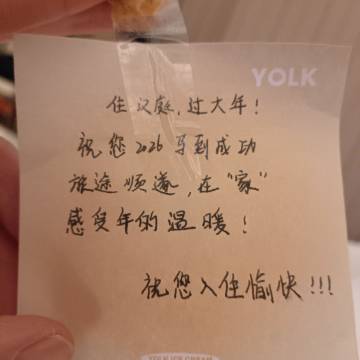 YOLK
住汉庭,过大年!
祝您2026马到成功
旅途顺遂,在“家”
感受年的温暖!
祝您入住愉快!!!
YOLK ICE CREAM